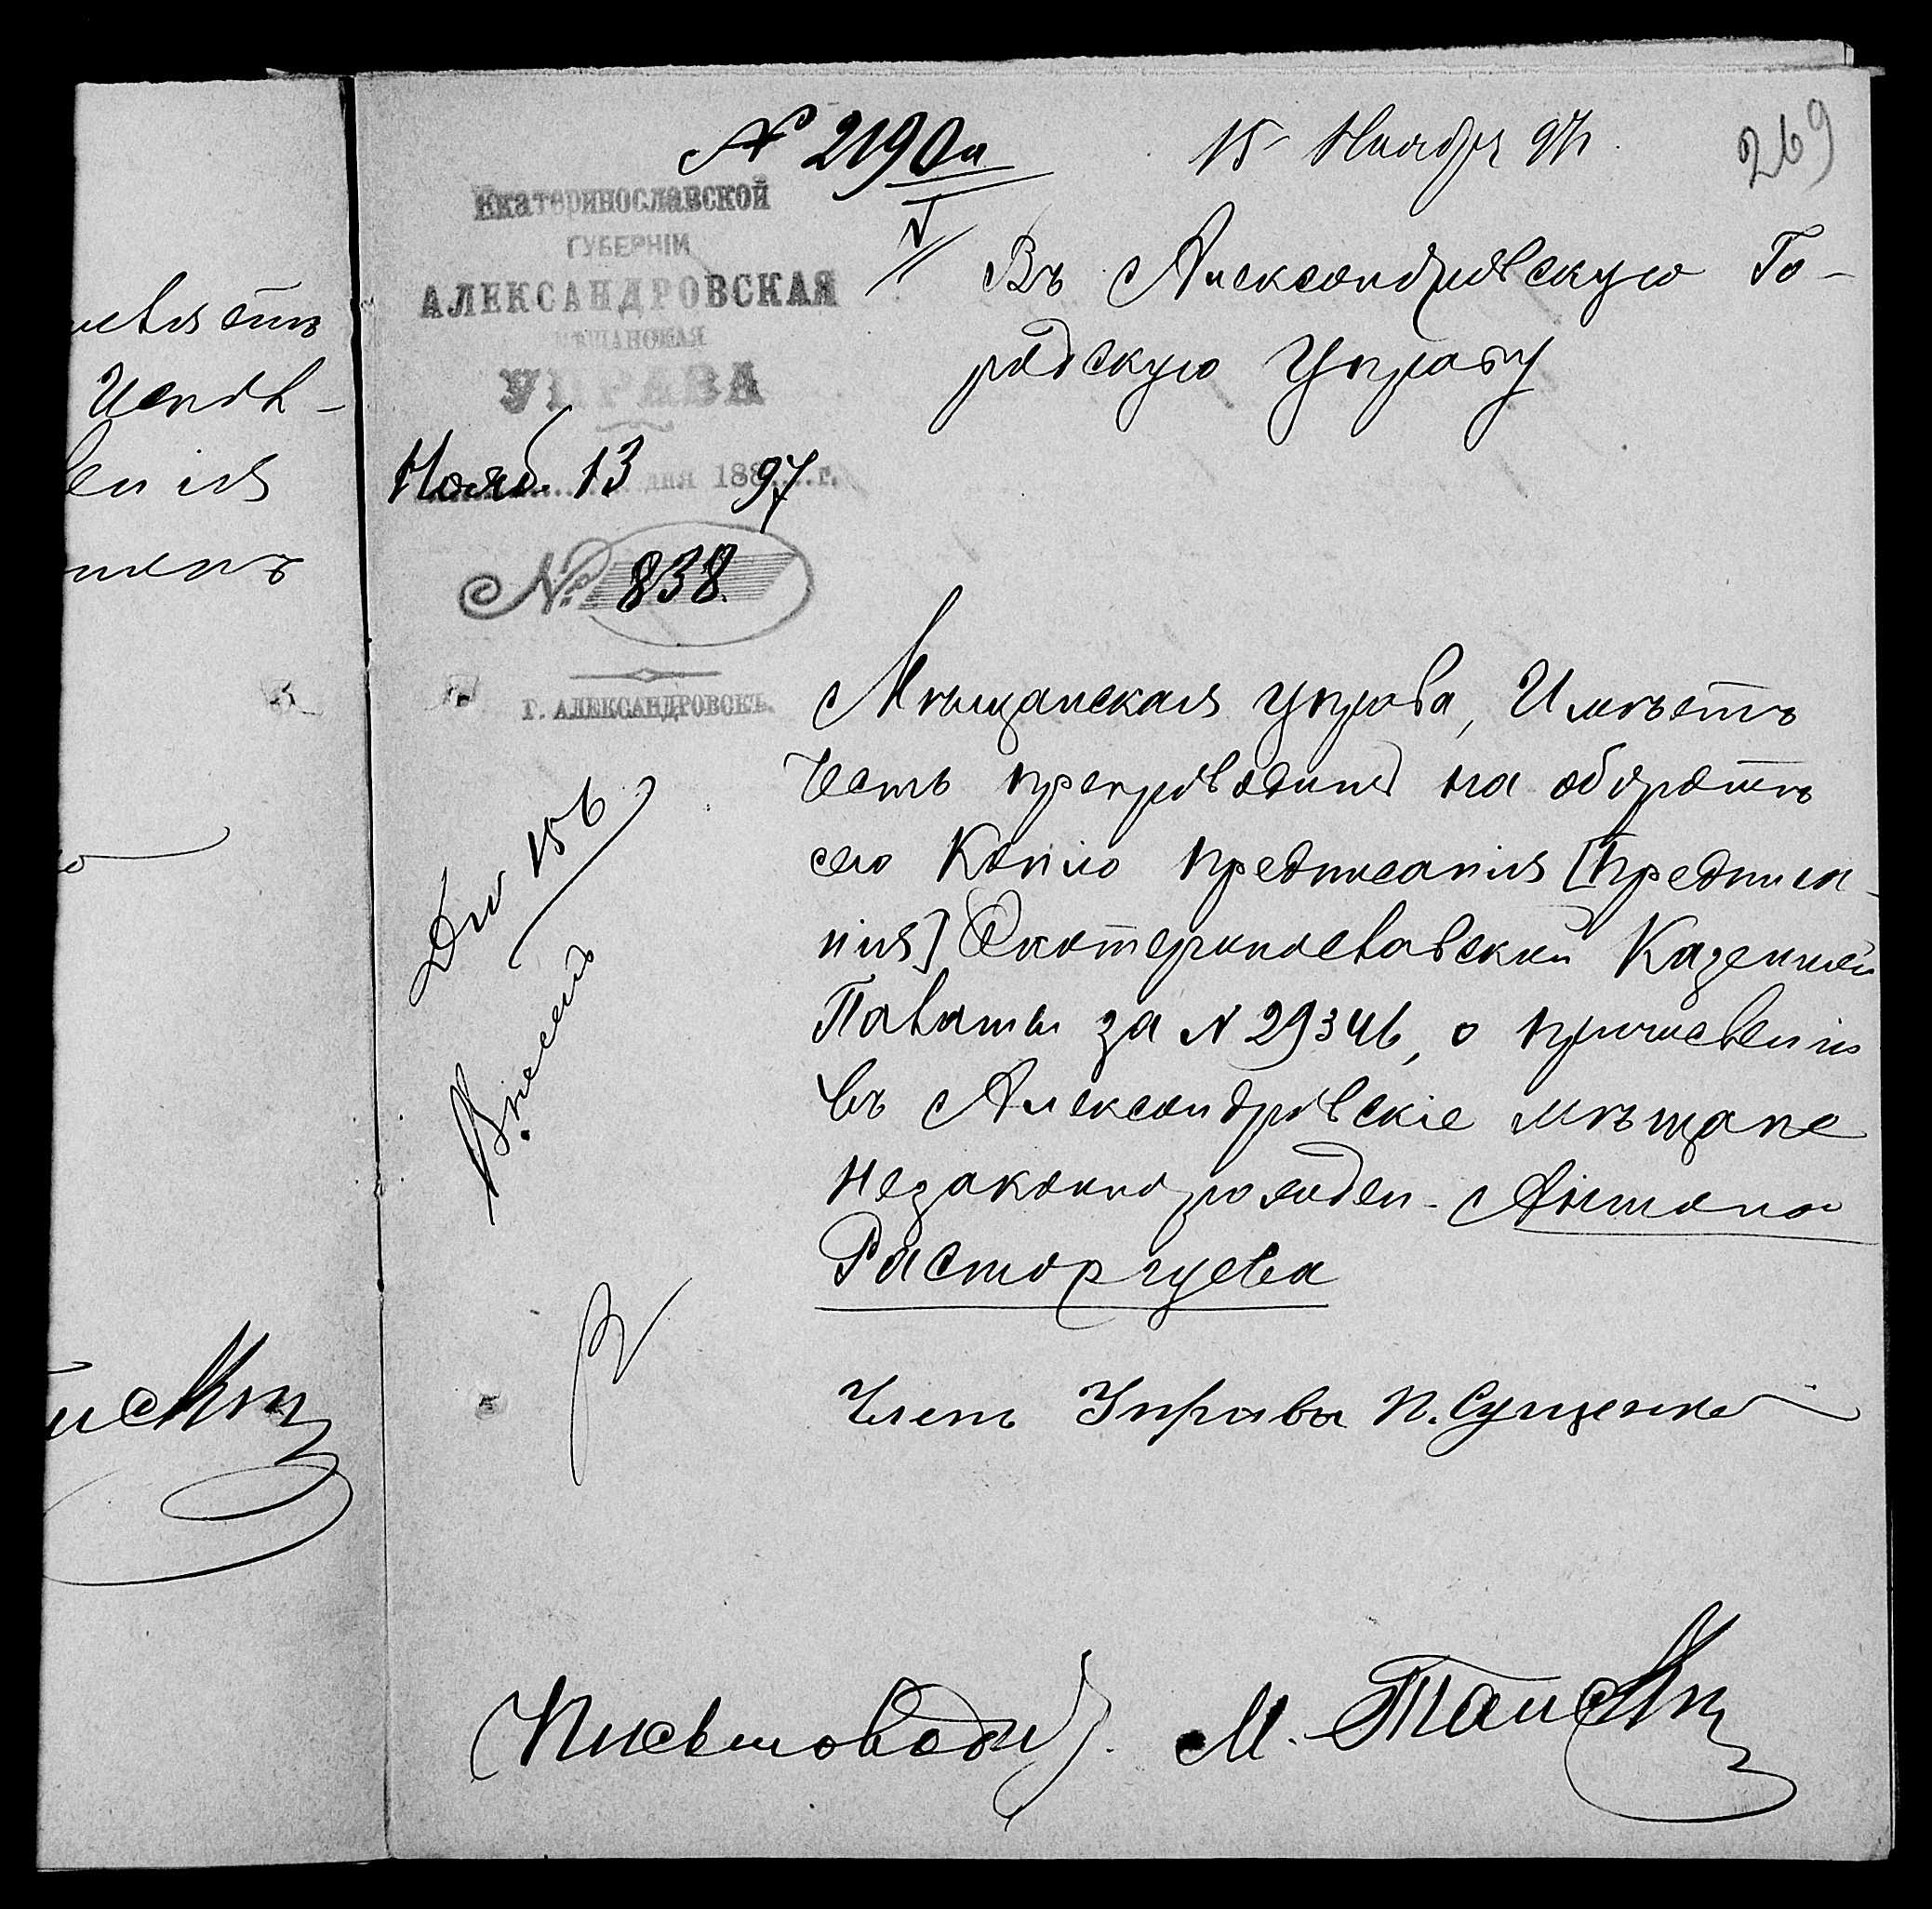 № 2190а
15 Ноября 97г.
269
V
Екатеринославской
ГУБЕРНІИ
АЛЕКСАНДРОВСКАЯ
МѢЩАНСКАЯ
УПРАВА
Нояб. 13 дня 188 97 г.
№ 838.
Г. АЛЕКСАНДРОВСКЪ.
Въ Александровскую Го-
родскую Управу
Мѣщанская управа, Имѣетъ
честь препроводить на оборотѣ
сего Копію предписанія [предписа-
нія] Екатеринославской Казенной
Палаты за № 29346, о причисленіи
въ Александровскіе мѣщане
незаконнорожден. Антона
Расторгуева
Членъ Управы П. Сущенко
Письмоводит. М.